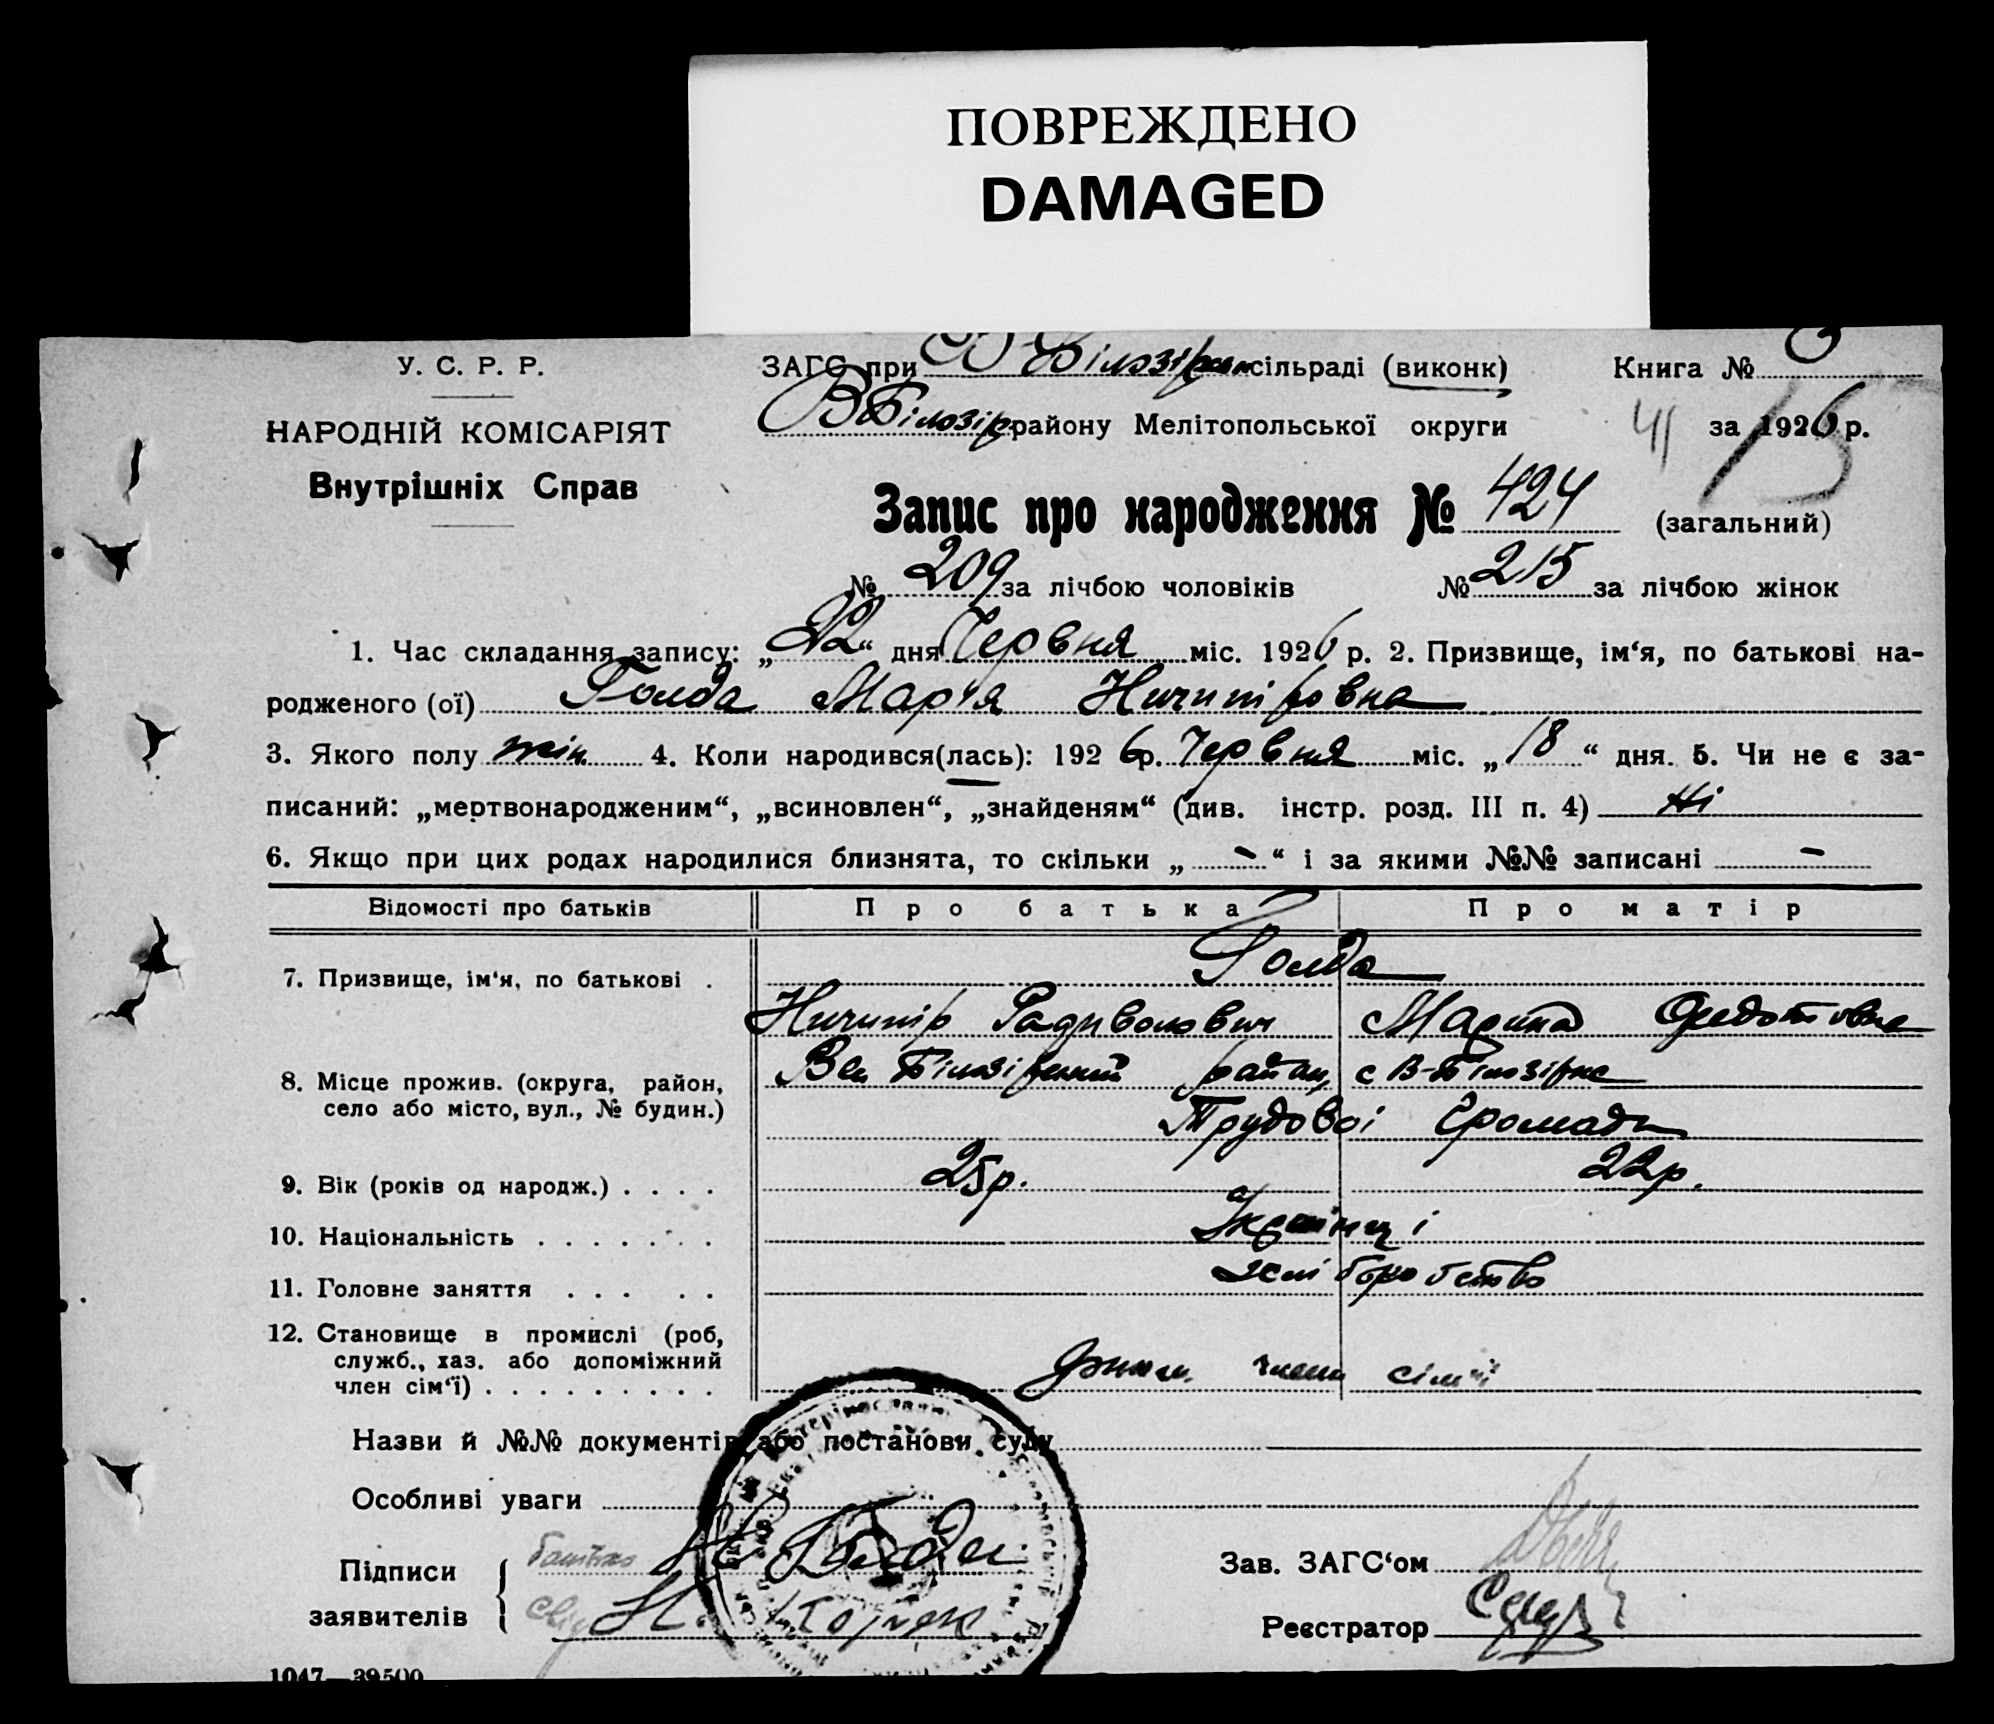 ПОВРЕЖДЕНО
DAMAGED
У. С. Р. Р.
НАРОДНІЙ КОМІСАРІЯТ
Внутрішніх Справ
ЗАГС при В-Білозірськ сільраді (виконк)
ВБілозір району Мелітопольської округи
Книга №
41 за 1926 р.
15
Запис про народження № 424 (загальний)
№ 209 за лічбою чоловіків № 215 за лічбою жінок
1. Час складання запису: „22“ дня Червня міс. 1926 р. 2. Призвище, ім‘я, по батькові на-
родженого (ої) Голда Марія Ничипірովна
3. Якого полу жін. 4. Коли народився(лась): 1926 р. Червня міс. „18“ дня. 5. Чи не є за-
писаний: „мертвонародженим“, „всиновлен“, „знайденям“ (див. інстр. розд. III п. 4) Ні
6. Якщо при цих родах народилися близнята, то скільки „ - “ і за якими №№ записані -
Відомості про батьків Про батька Про матір
7. Призвище, ім‘я, по батькові . Голда
Ничипір Радивонович Марина Федотовна
8. Місце прожив. (округа, район, Вел Білозірський район, с В-Білозірка
село або місто, вул., № будин.) Трудової Громади
9. Вік (років од народж.) . . . . 25р. 22р.
10. Національність . . . . . . . Українці
11. Головне заняття . . . . . хліборобство
12. Становище в промислі (роб,
служб., хаз. або допоміжний
член сім‘ї) . . . . . . . . . член сім‘ї
Назви й №№ документів або постанови суду
Особливі уваги
Підписи батько Н Голда
заявителів Н.
Зав. ЗАГС‘ом
Реєстратор
1047—39500